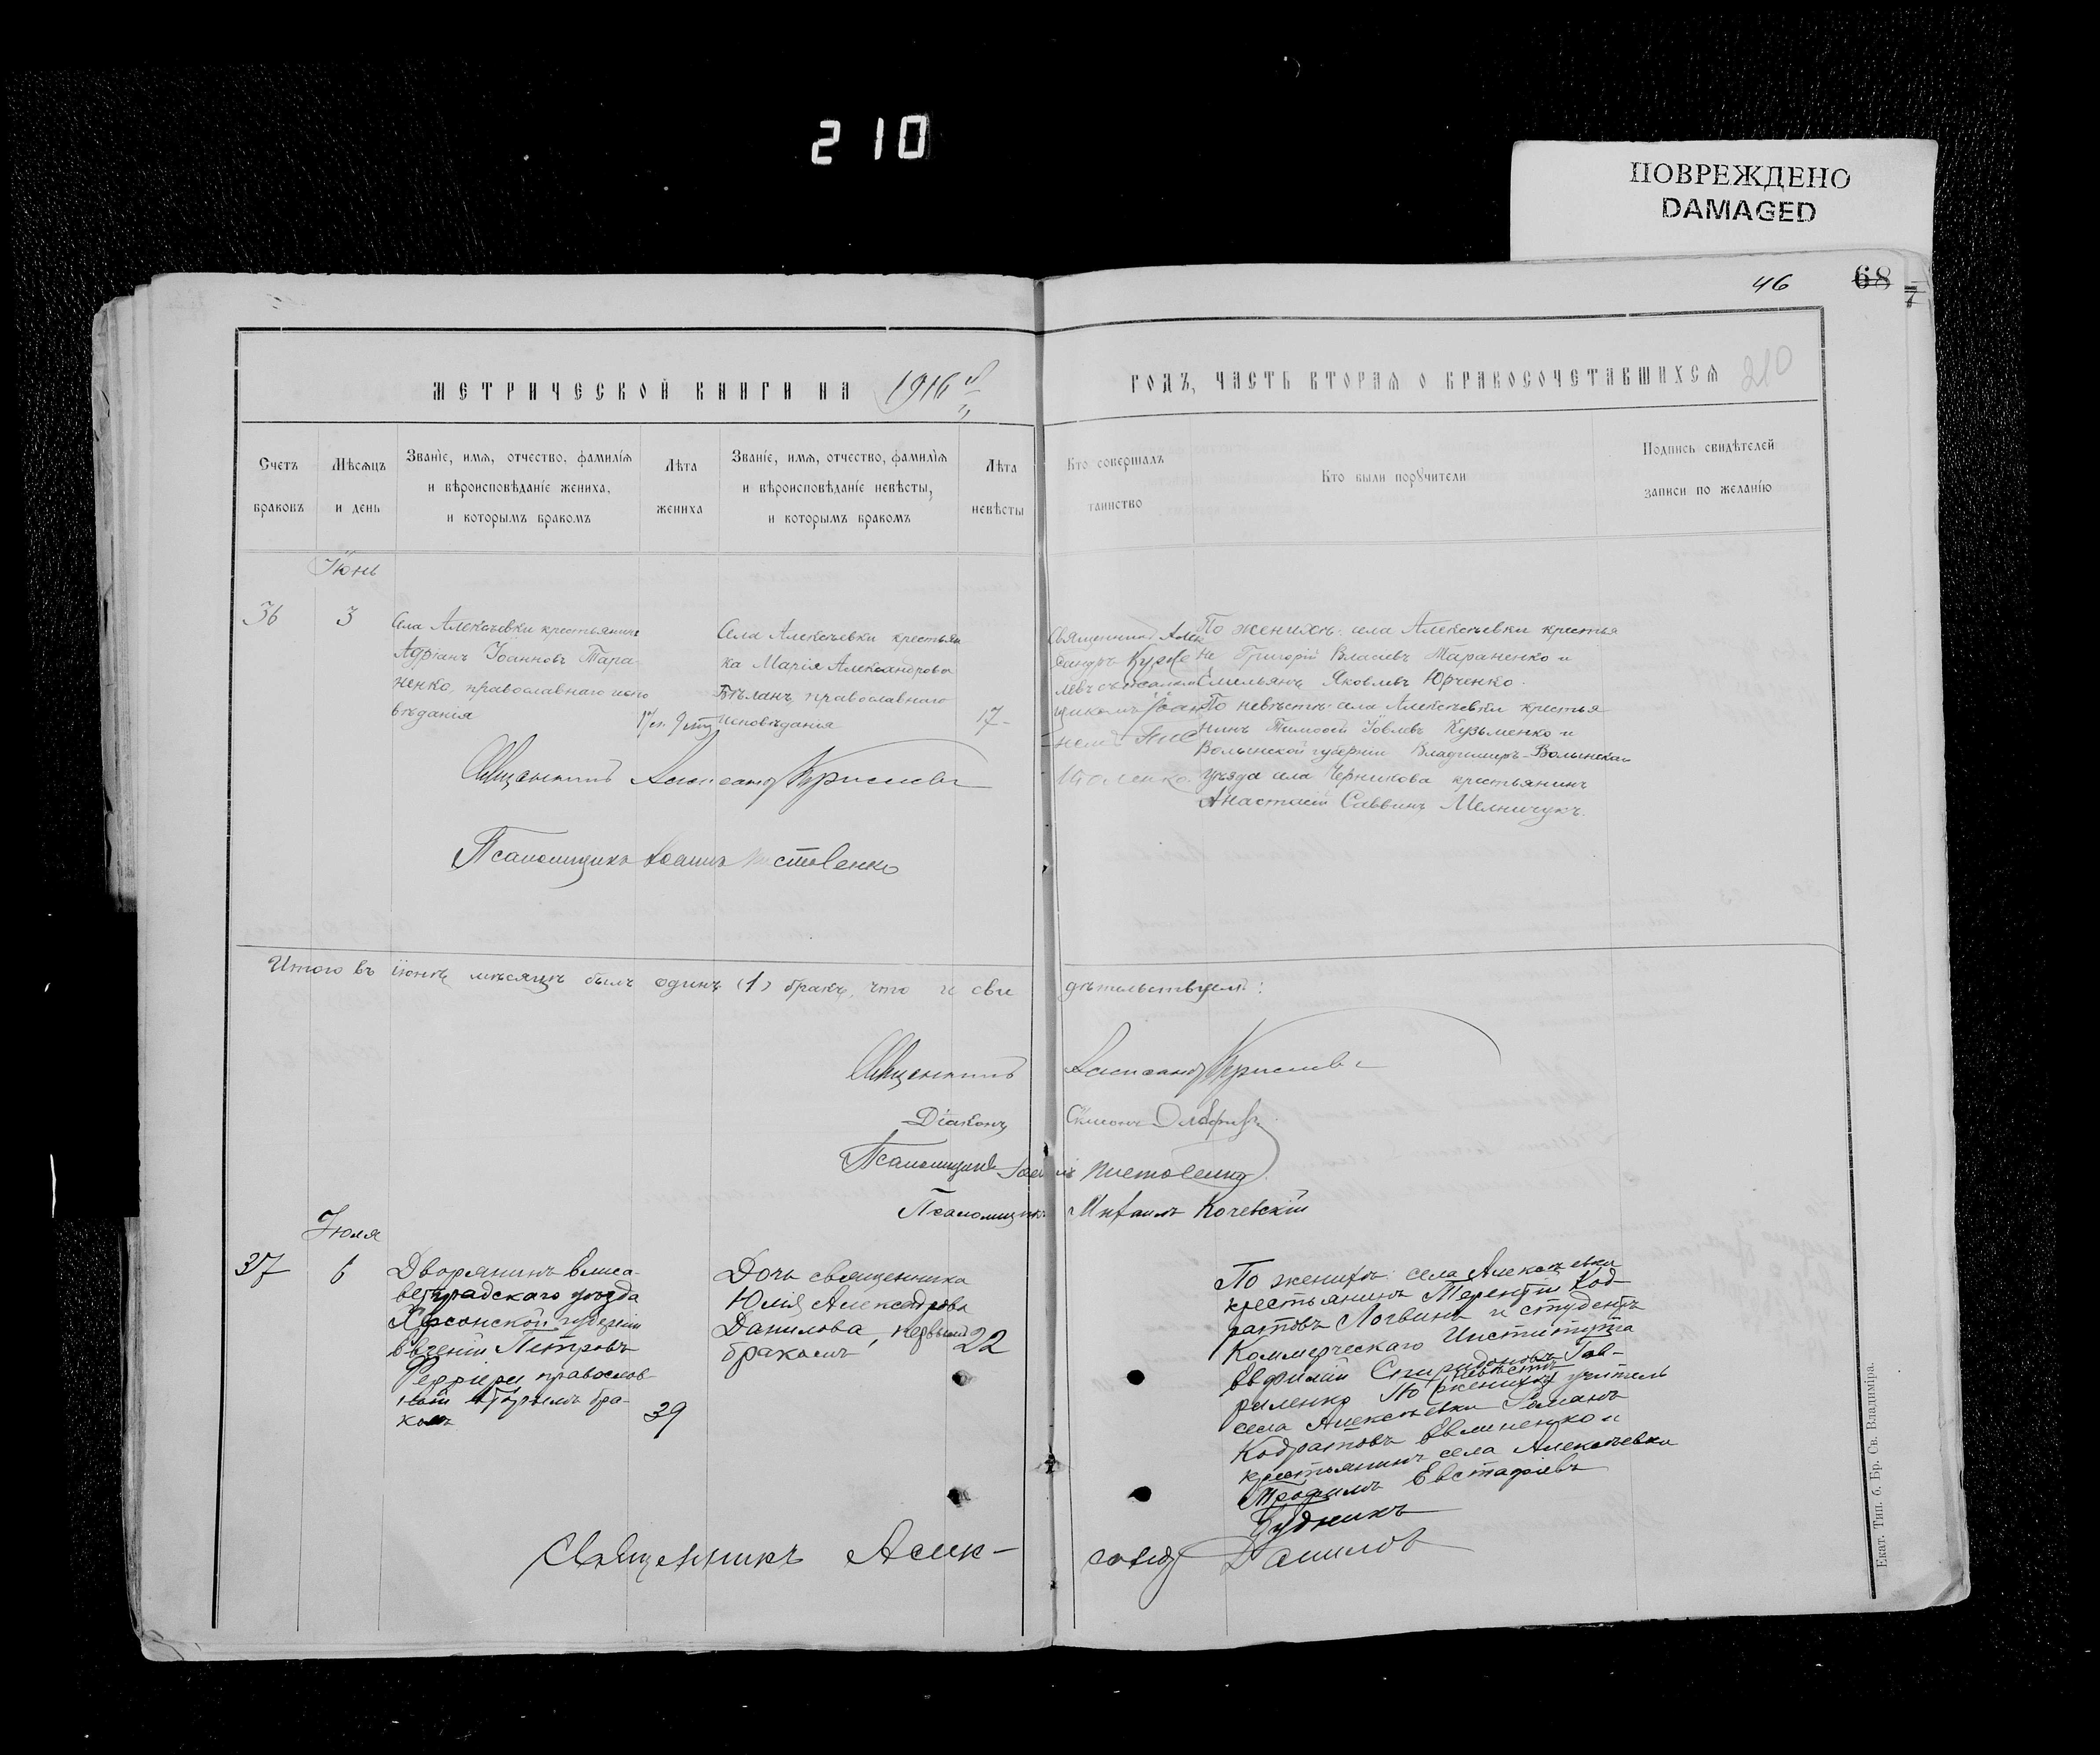 210
ПОВРЕЖДЕНО
DAMAGED
46
68
7
МЕТРИЧЕСКОЙ КНИГИ НА 1916 й
ГОДЪ, ЧАСТЬ ВТОРАЯ О БРАКОСОЧЕТАВШИХСЯ 210
Счетъ браковъ
Мѣсяцъ и день
Званіе, имя, отчество, фамилія
и вѣроисповѣданіе жениха,
и которымъ бракомъ
Лѣта жениха
Званіе, имя, отчество, фамилія
и вѣроисповѣданіе невѣсты,
и которымъ бракомъ
Лѣта невѣсты
Кто совершалъ таинство
Кто были порꙋчители
Подпись свидѣтелей
записи по желанію
Іюнь
36
3
Села Алексѣевки крестьянинъ
Адріанъ Іоанновъ Тара
ненко, православнаго испо
вѣданія
Села Алексѣевки крестьян
ка Марія Александрова
Бѣланъ, православнаго
исповѣданія
17
Священникъ Алек
сандръ
По женихѣ: села Алексѣевки крестья
не Григорій Власіевъ Тараненко и
Емельянъ Яковлевъ Юрченко.
По невѣстѣ: села Алексѣевки крестья
нинъ Тимофей Іовлевъ Кузьменко и
Волынской губерніи Владимиръ-Волынскаго
уѣзда села Черникова крестьянинъ
Анастасій Саввинъ Мельничукъ.
Священникъ Александръ
Псаломщикъ Іоаннъ
Итого въ іюнѣ мѣсяцѣ былъ одинъ (1) бракъ, что и сви
дѣтельствуемъ:
Священникъ Александръ
Діаконъ Симеонъ
Псаломщикъ Іоаннъ
Псаломщикъ Михаилъ Кочевскій
Іюля
37
6
Дворянинъ Елиса-
ветградскаго уѣзда
Херсонской губерніи
Евгеній Петровъ
Ферріери православ-
ный вторымъ бра-
комъ
39
Дочь священника
Юлія Александрова
Данилова, первымъ
бракомъ
22
По женихѣ: села Алексѣевки
крестьянинъ Терентій Код-
ратовъ Логвинъ и студентъ
Коммерческаго Института
Евфимій Спиридоновъ Гав-
риленко По женихѣ невѣстѣ учитель
села Алексѣевки Романъ
Кодратовъ Евминенко и
крестьянинъ села Алексѣевки
Трофимъ Евстафіевъ
Чудникъ
Священникъ Алек-
сандръ Даниловъ
Екат. Тип. б. Бр. Св. Владиміра.